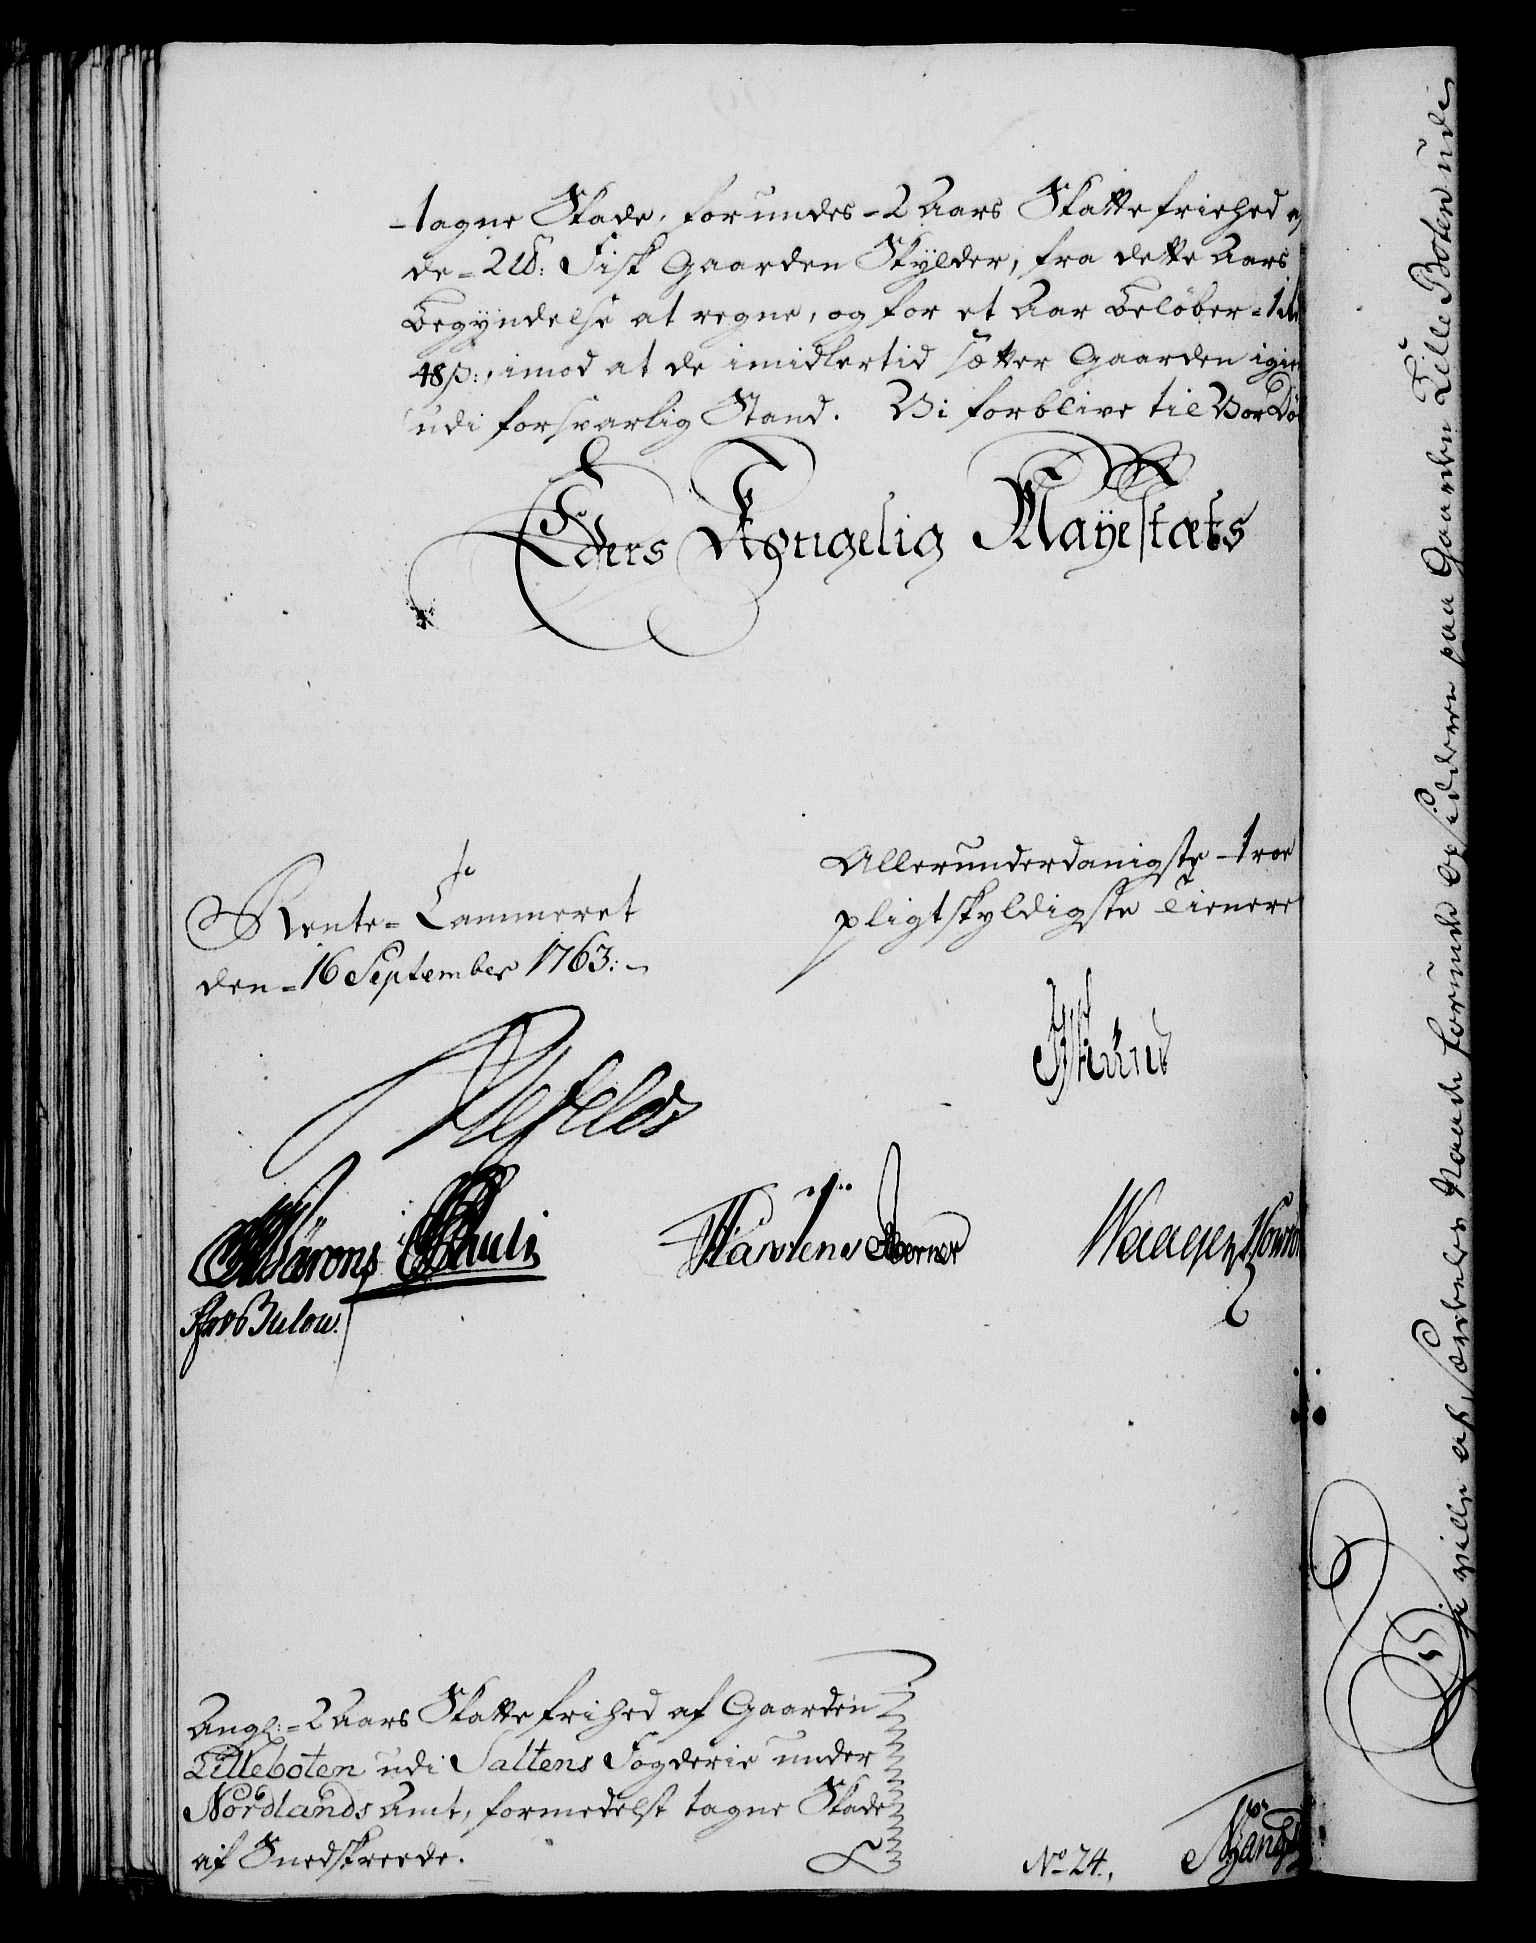 tagne Skade, forundes 2 Aars Skattefriehed
de 2 lb: Fisk Gaarden Skylder, fra dette Aars
Begyndelse at regne, og for et Aar beløber
48 s:, imod at de imidlertid sætter Gaarden igien
udi forsvarlig Stand. Vi forblive til Vor
Eders Kongelig Mayestæts
Allerunderdanigste troe
pligtskyldigste Tienere
Rente-Cammeret
den 16 September 1763:
Bulow.
Ang: 2 Aars Skattefrihed af Gaarden
Lilleboten udi Saltens Fogderie under
Nordlands Amt, formedelst tagne Skade
af Sneeskreede.
No 24.,
Vi ville af særdeles Naade forunde Opsidderen paa Gaarden Lille Boten udi